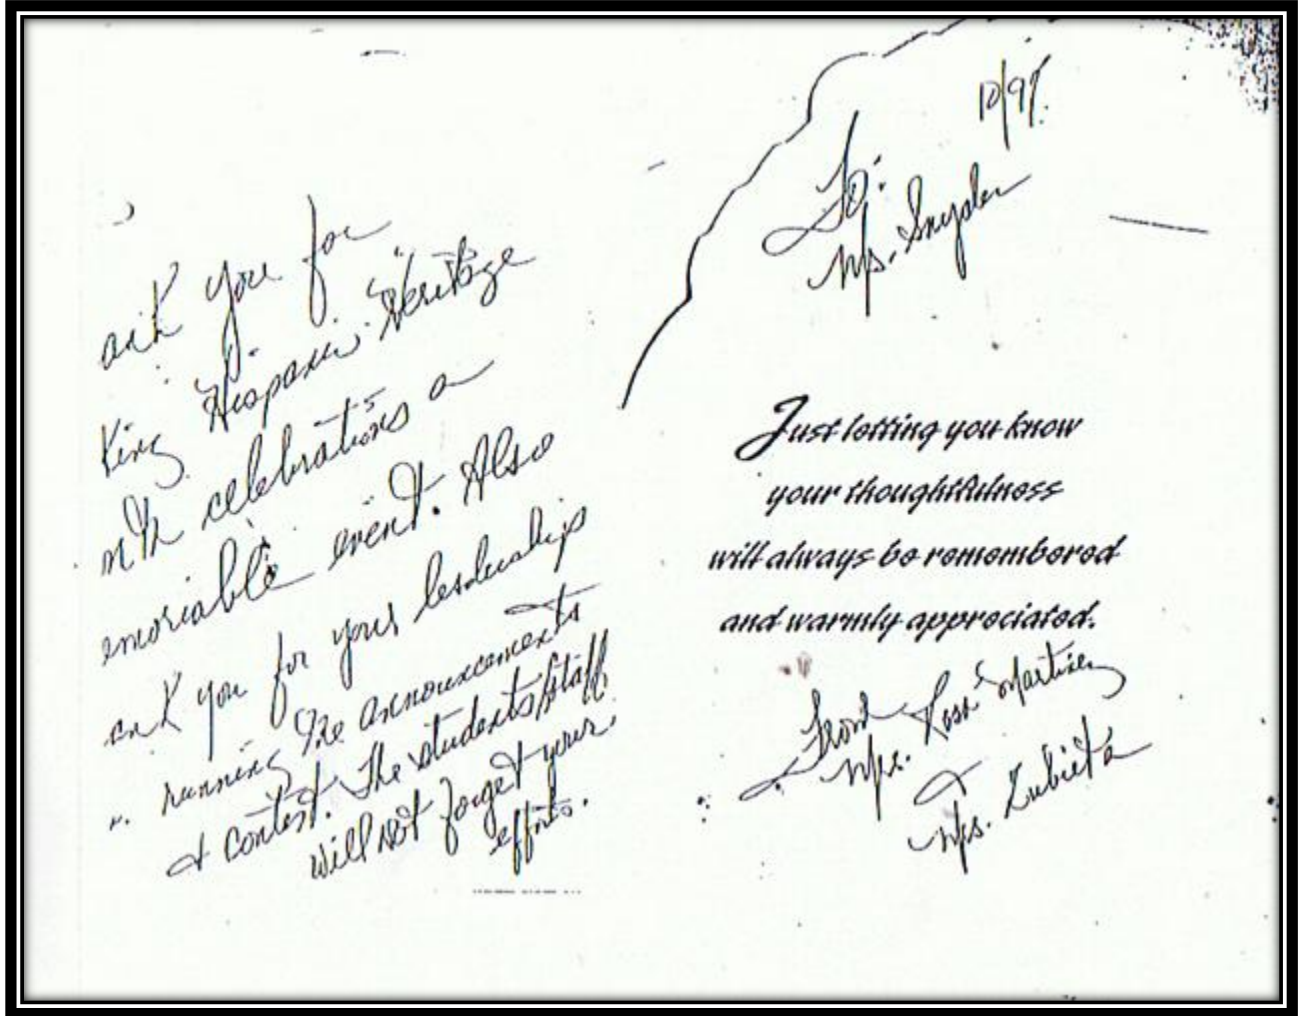 ank you for
king Hispanic Heritage
nth celebrations a
emoriable event. Also
ank you for your leadership
running the announcements
& contest. The students/staff
will not forget your
efforts.
10/97
To:
Ms. Snyder
Just letting you know
your thoughtfulness
will always be remembered
and warmly appreciated.
From Rosa Martinez
Mrs.
&
Mrs. Zubieta